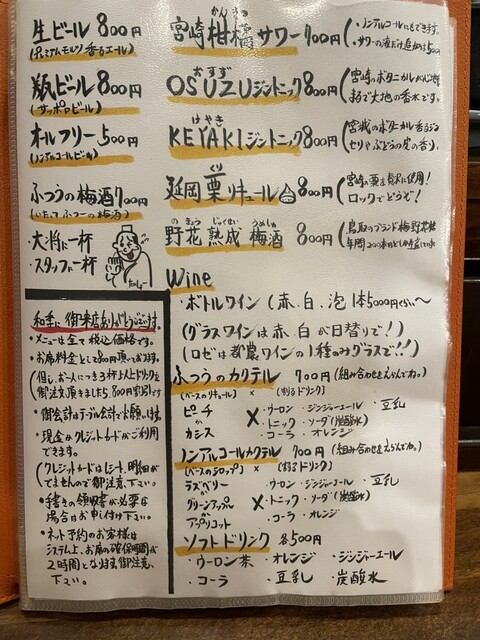 生ビール 800円
(プレミアムモルツ 香るエール)
瓶ビール 800円
(サッポロビール)
オールフリー 500円
(ノンアルコールビール)
ふつうの梅酒 700円
(いたってふつーの梅酒)
・大将に一杯
・スタッフに一杯
かんきつ
宮崎 柑橘 サワー 700円
(・ノンアルコールにもできます。
おすず
OSUZU ジントニック 800円
まるで大地の香水です。
けやき
KEYAKI ジントニック 800円
(宮城のボタニカル香るジン
セリやぶどうの皮の香り。
延岡 栗 リキュール 800円
ロックでどうぞ!
のきょう じゅくせい うめしゅ
野花 熟成 梅酒 800円
(鳥取のブランド梅野花梅
Wine
・ボトルワイン (赤、白、泡 1本5000円くらい〜
(グラスワインは 赤、白 が日替りで!)
(ロゼは都農ワインの1種のみグラスで!!)
ふつうのカクテル 700円 (組み合わせをえらんでね。)
(ベースのリキュール) × (割るドリンク)
ピーチ
か
カシス
×
・ウーロン ・ジンジャーエール ・豆乳
・トニック ・ソーダ(炭酸水)
・コーラ ・オレンジ
ノンアルコールカクテル 700円 (組み合わせをえらんでね。)
(ベースのシロップ) × (割るドリンク)
ラズベリー
か
グリーンアップル
か
アプリコット
×
・ウーロン ・ジンジャーエール ・豆乳
・トニック ・ソーダ(炭酸水)
・コーラ ・オレンジ
ソフトドリンク 各500円
・ウーロン茶 ・オレンジ ・ジンジャーエール
・コーラ ・豆乳 ・炭酸水
和季に御来店ありがとうございます。
・メニューは全て税込価格です。
・お席料金として800円頂いております。
(但し、お一人につき3杯以上ドリンクを
御注文頂きましたら、800円割引です
・御会計はテーブル会計でお願いします。
・現金かクレジットカードがご利用
できます。
(クレジットカードはレシート、明細が
でませんので御注意下さい。)
・手書きの領収書が必要な
場合はお申し付け下さい。
・ネット予約のお客様は
システム上、お席の確保時間が
2時間となります、御注意
下さい。